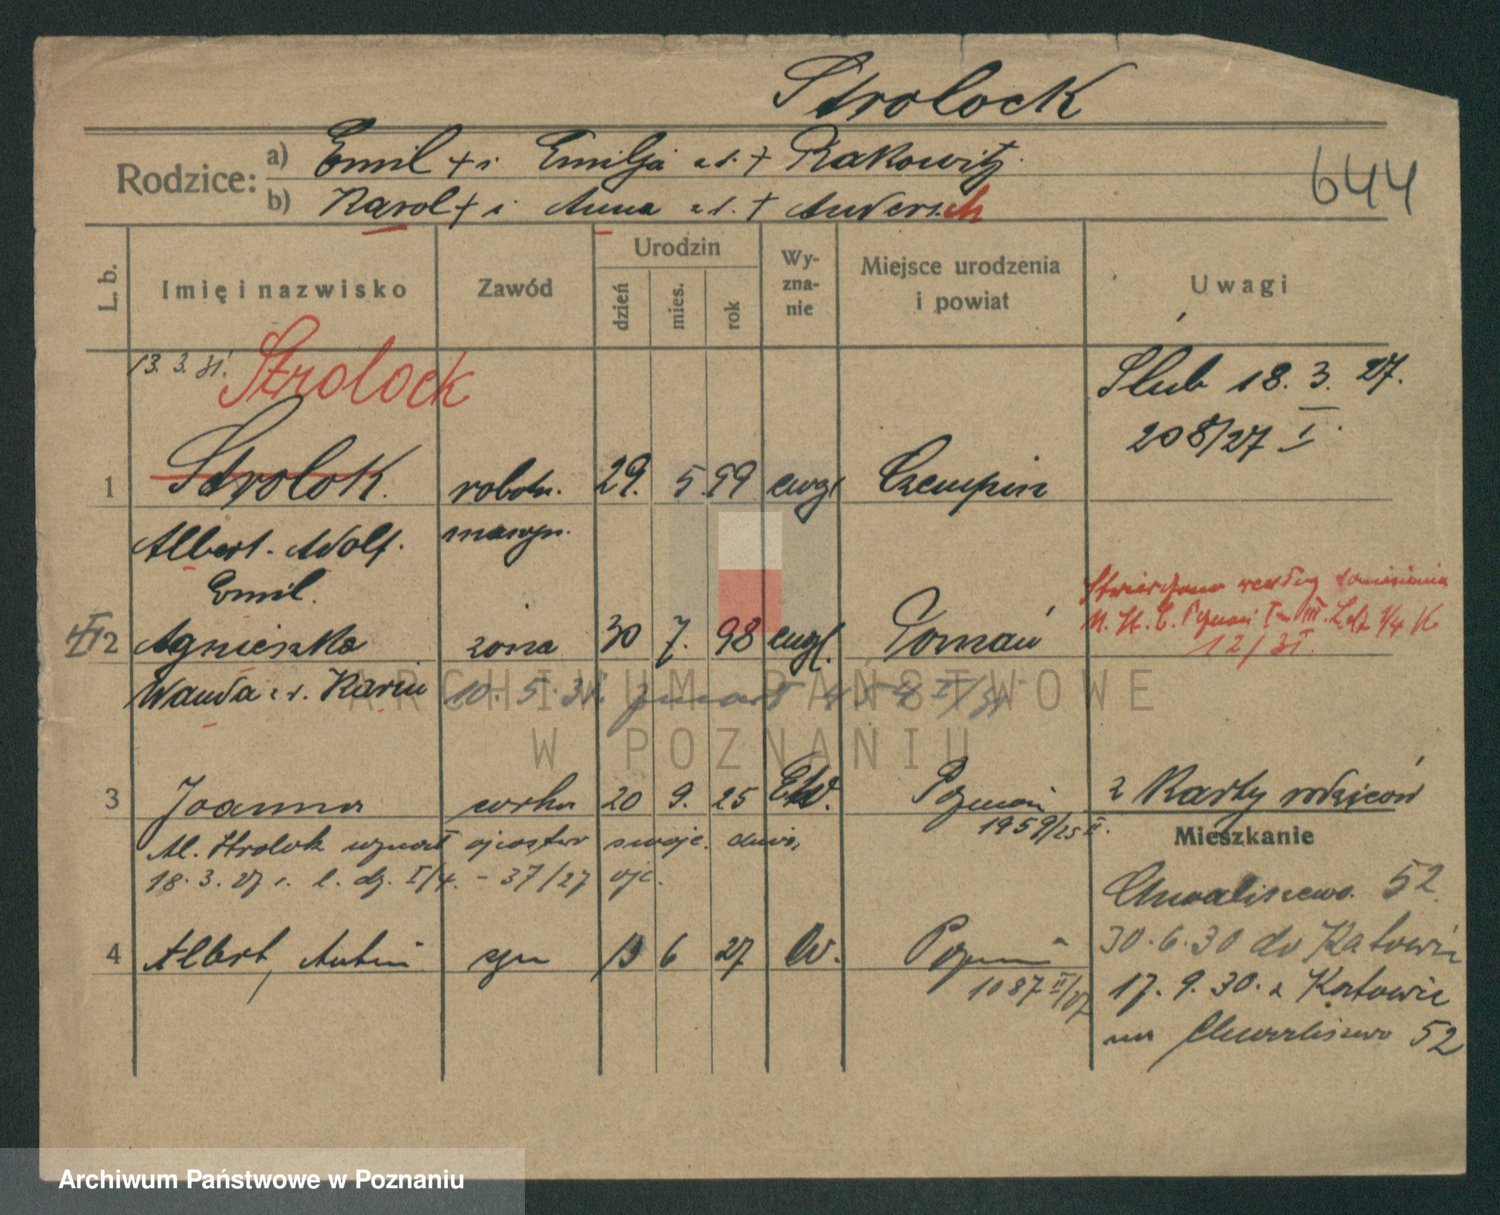 Strolock
644
Rodzice: a) Emil + i Emilja z d. + Rakowitz
b) Karol + i Anna z d. + Andersch
L. b. Imię i nazwisko Zawód Urodzin dzień mies. rok Wyznanie Miejsce urodzenia i powiat Uwagi
13. 3. 31. Strolock
Ślub 18. 3. 27.
208/27 I
1 Strolok robotn. 29. 5. 99 ewgl Czempin
Albert Adolf
Emil.
2 Agnieszka żona 30 7. 98 ewgl. Poznań
Stwierdzono według
12/31.
Wanda z d. Karin 10. 5. 31. zmarł 454 II/31
3 Joanna córka 20 9. 25 Ew. Poznań
1959/25 II.
2 Karty rodziców
Al. Strolok uznał ojcostwo swoje dnia,
18. 3. 27 r. l. dz. I/4. - 37/27
Mieszkanie
Chwaliszewo 52
4 Albert, Antoni syn 13 6 27 Ew. Poznań
1087 II/27
30. 6. 30 do Katowic
17. 9. 30. z Katowic
na Chwaliszewo 52
ARCHIWUM PAŃSTWOWE
W POZNANIU
Archiwum Państwowe w Poznaniu